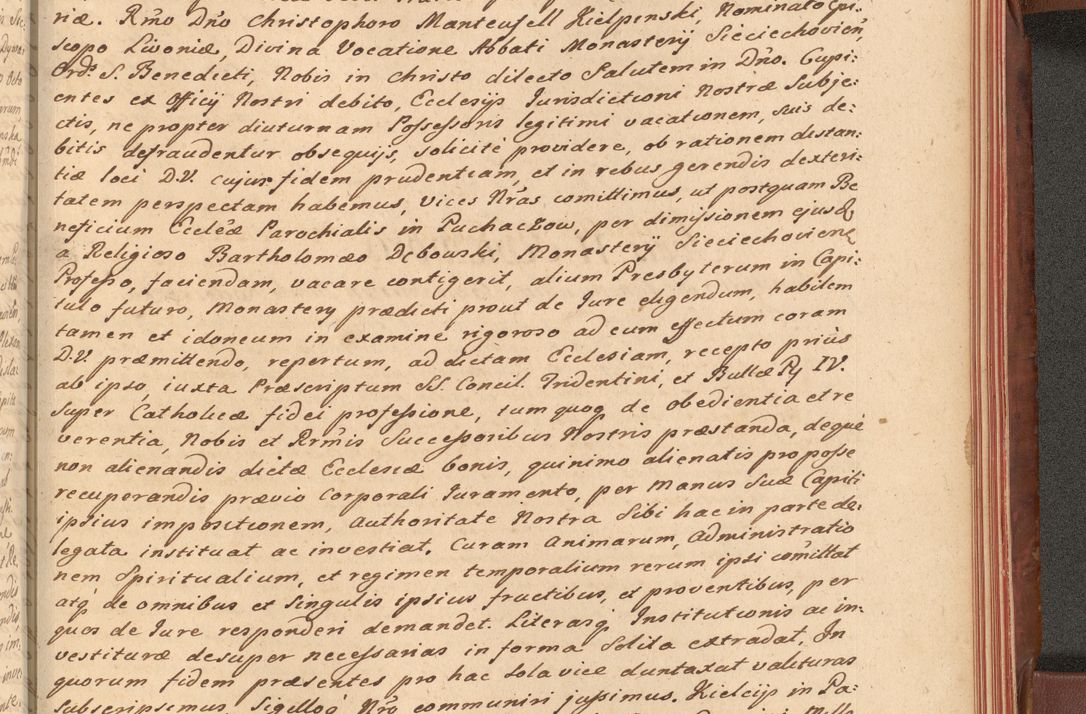 riæ. Rmo Dno Christophoro Manteuffell Kielpinski, Nominato Epi:
scopo Livoniæ, Divina Vocatione Abbati Monasterij Sieciechovien
Ord. S. Benedicti, Nobis in Christo dilecto Salutem in Dno. Cupi:
entes ex Officij Nostri debito, Ecclesijs Jurisdictioni Nostræ Subje:
ctis, ne propter diuturnam Possessoris legitimi vacationem, suis de:
bitis defraudentur obsequijs, solicite providere, ob rationem distan:
tiæ loci D.V. cujus fidem prudentiam, et in rebus gerendis dexteri:
tatem perspectam habemus, vices Nras comittimus, ut postquam Be
neficium Ecclæ Parochialis in Puchaczow, per dimissionem ejusd
a Religioso Bartholomæo Dębowski, Monasterij Sieciechovien
Professo, faciendam, vacare contigerit, alium Presbyterum in Capi:
tulo futuro, Monastery prædicti prout de Jure eligendum, habilem
tamen et idoneum in examine rigoroso ad eum effectum coram
D.V. præmittendo, repertum, ad dictam Ecclesiam, recepto priùs
ab ipso, iuxta Præscriptum Concil. Tridentini, et Bullæ Pij IV.
super Catholicæ fidei professione, tum quoq de obedientia et re
verentia, Nobis et Rrmis Successoribus Nostris præstanda, deque
non alienandis dictæ Ecclesiæ bonis, quinimo alienatis pro posse
recuperandis prævio Corporali Juramento, per Manus Suæ Capiti
ipsius impositionem, Authoritate Nostra Sibi hac in parte de:
legata instituat ac investiat, Curam Animarum, Administratio
nem Spiritualium, et regimen temporalium rerum ipsi comittat
atq de omnibus et Singulis ipsius fructibus, et proventibus, per
quos de Jure responderi demandet. Literasq Institutionis ac in:
vestituræ desuper necessarias in forma Solita extradat. In
quorum fidem præsentes pro hac sola vice duntaxat valituras
Subscripsimus, Sigilloq Nro communiri jussimus. Kielcijs in Pa: